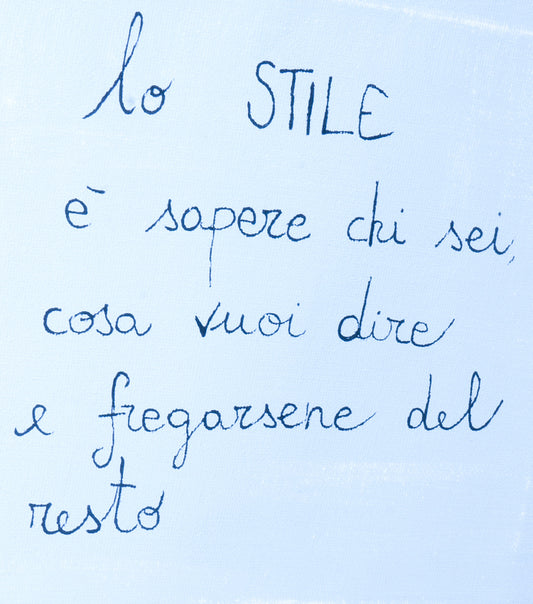 lo STILE
è sapere chi sei,
cosa vuoi dire
e fregarsene del
resto